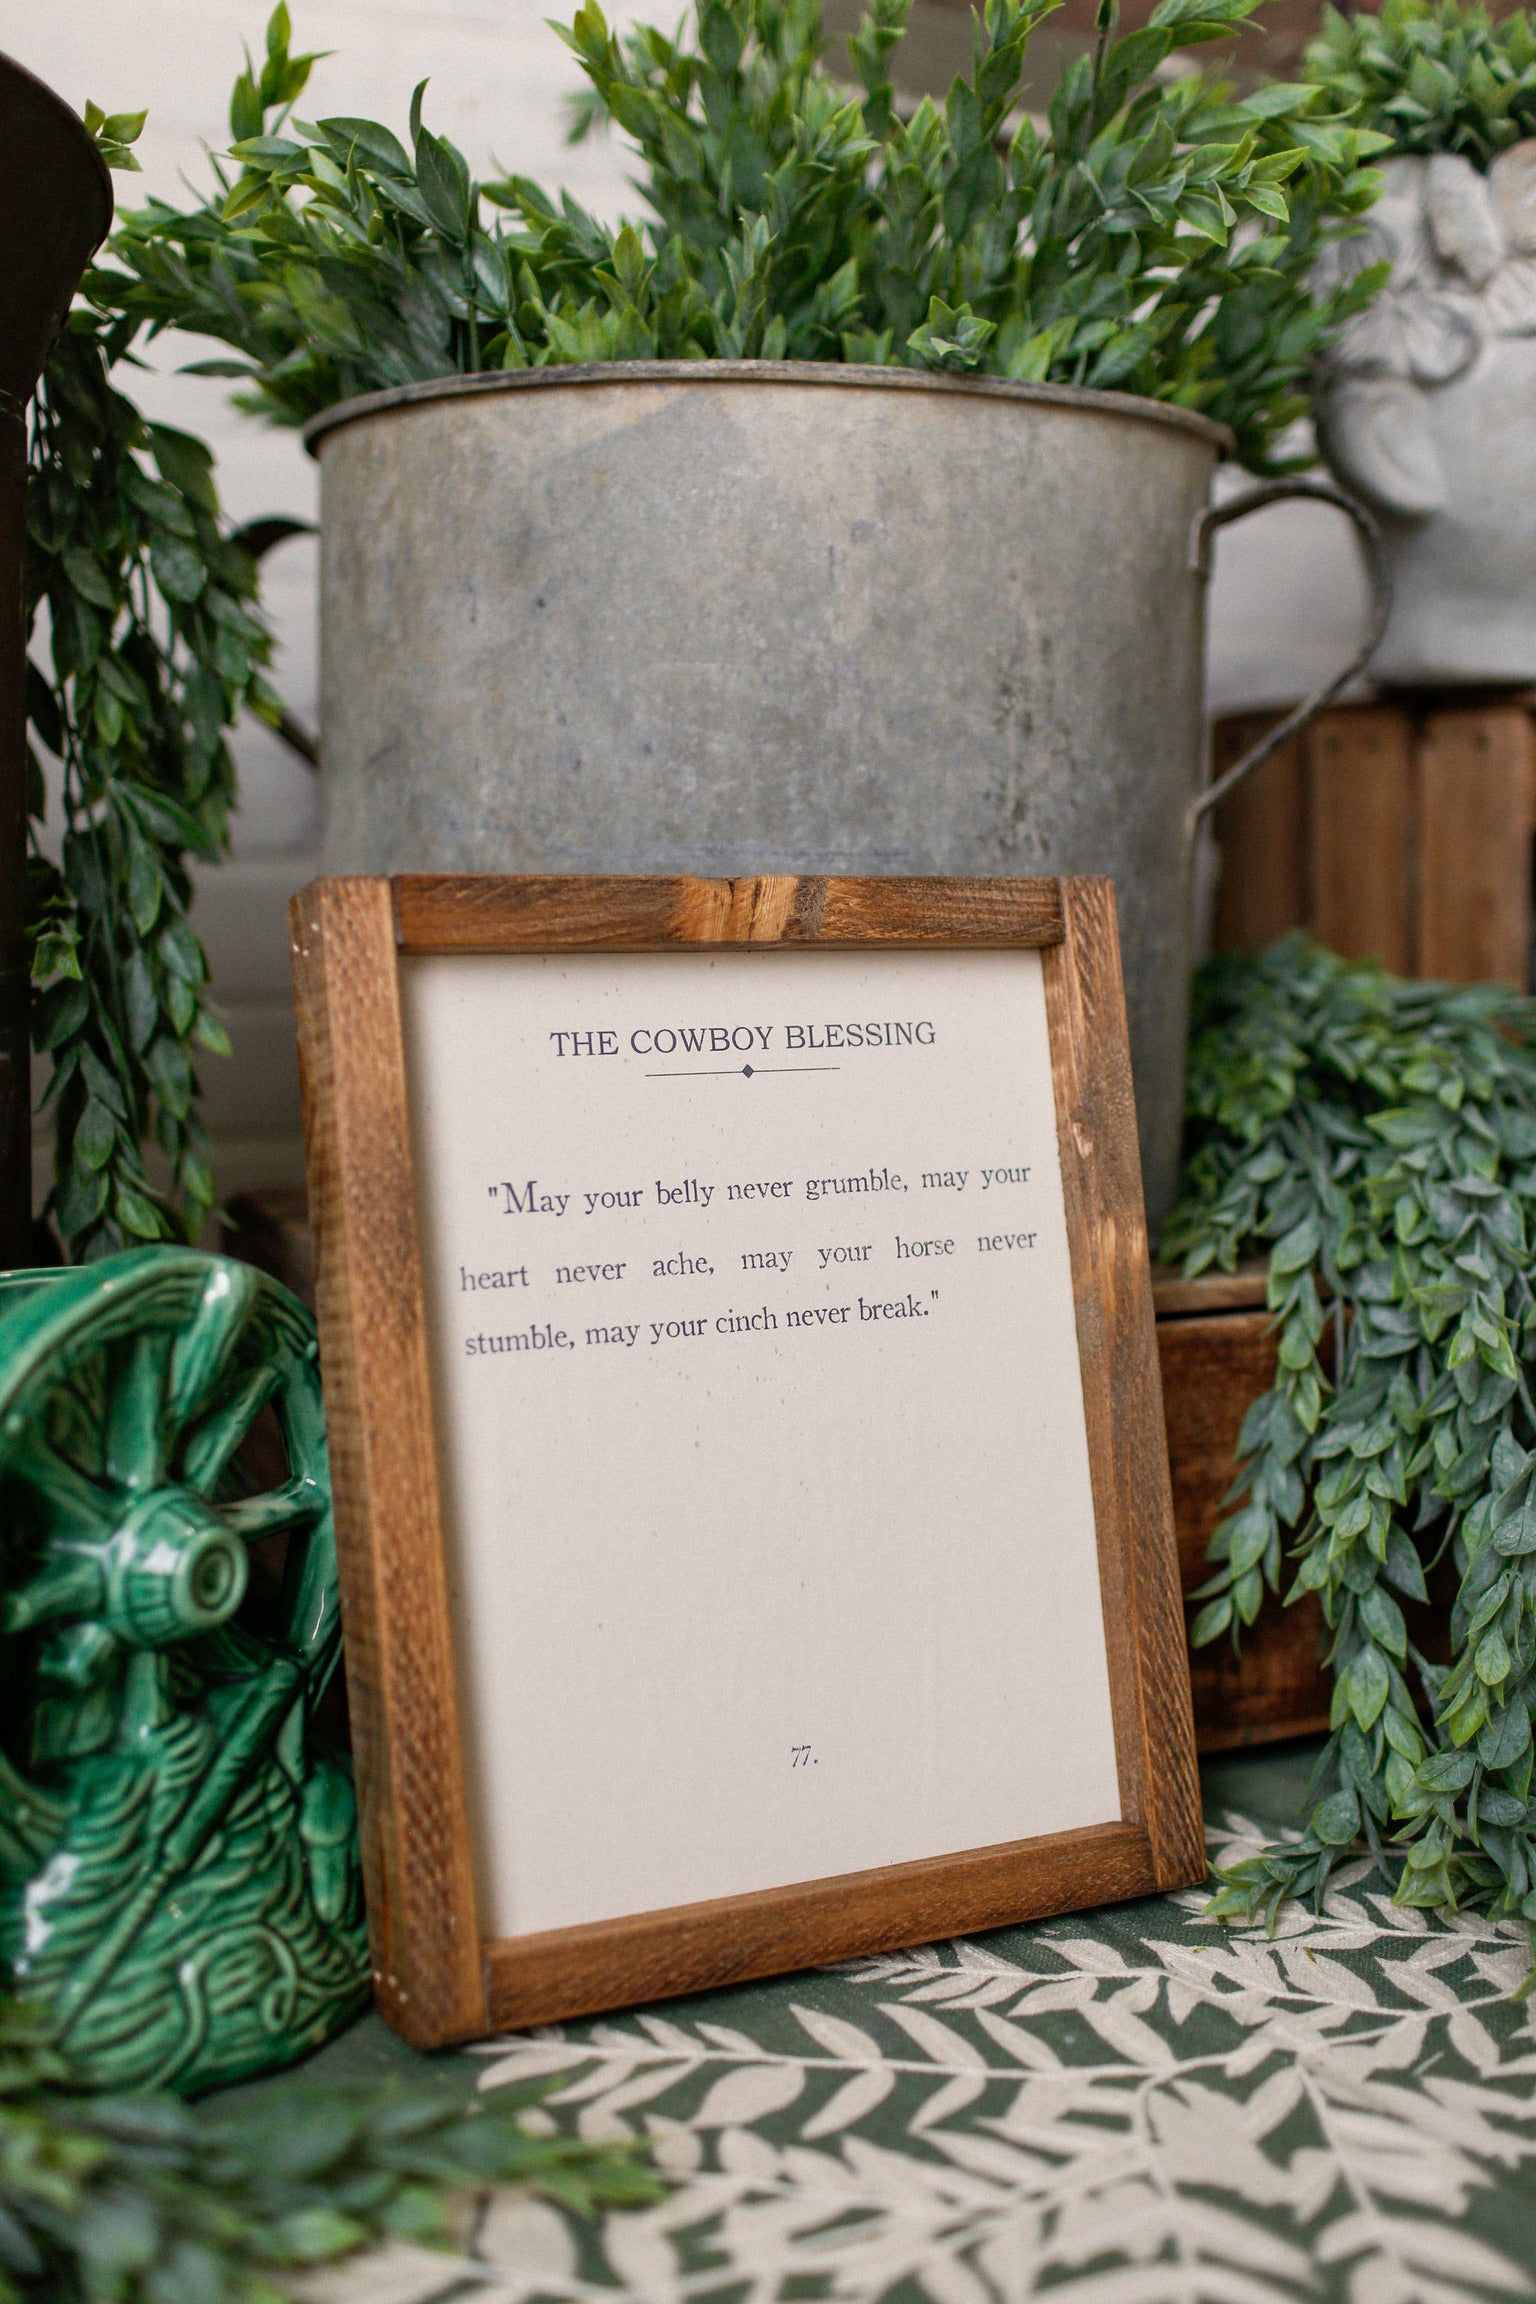 THE COWBOY BLESSING
"May your belly never grumble, may your
heart never ache, may your horse never
stumble, may your cinch never break."
77.